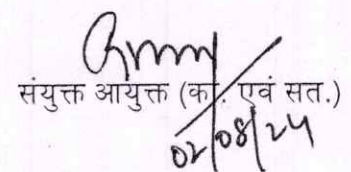 संयुक्त आयुक्त (का. एवं सत.)
02/08/24